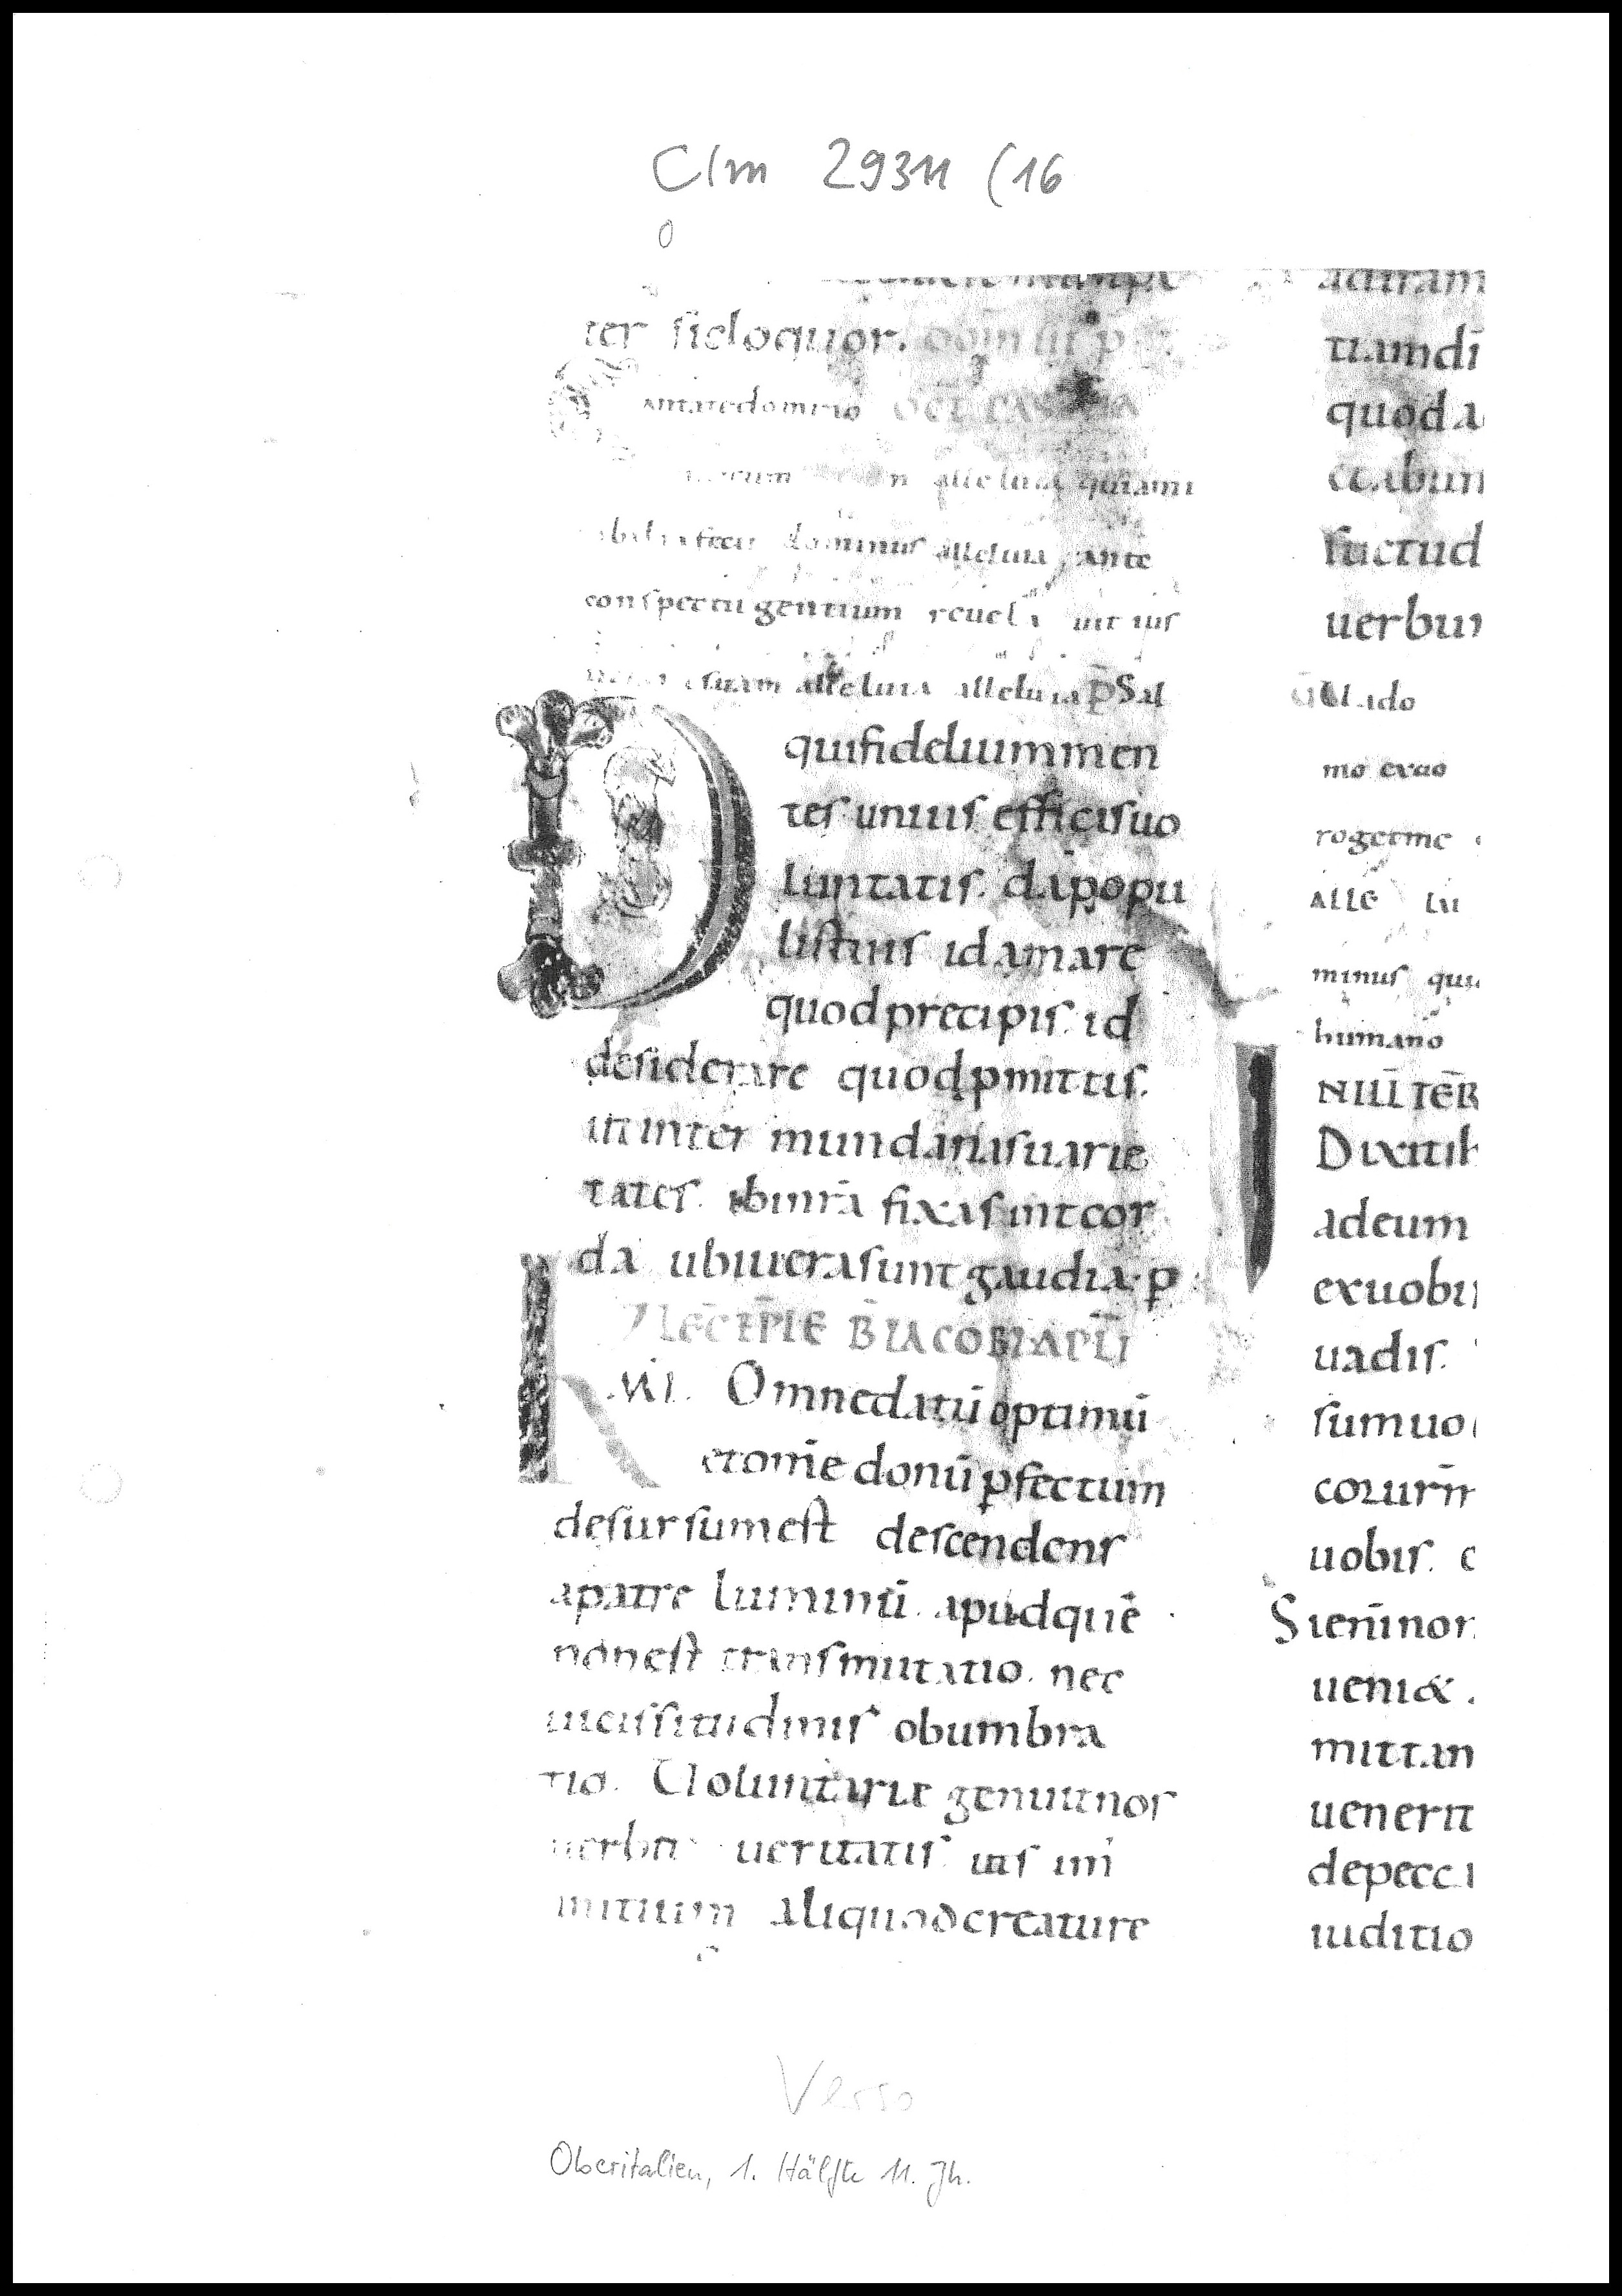 Clm 29311 (16
ter sicloquor.
antatedomino OCT PASCHA
alleluia quiami
fecit dominus alleluia ante
conspectu gentium reuela uit ius
suam alleluia alleluia p̄Sal
D quifideliummen
tes unius efficisuo
luntatis. dapopu
listuis idamare
quodprecipis. id
desiderare quodpmittis.
ut inter mundanasuarie
tates. ibinrā fixasintcor
da ubiuerasunt gaudia. p
LEC̄ EPĪE B̄ IACOBI APLI
K MI. Omnedatū optimū
etom̄e donū pfectum
desursumest descendens
apatre luminū. apudquē
nonest transmutatio. nec
uicissitudinis obumbra
tio. Uoluntarie genuitnos
uerbo ueritatis uts im
initium aliquodcreature
tiamdī
quoda
ctabun
suctud
uerbum
Uado
mo exuo
rogetme
ALLE LU
minus qui
humano
Dixitih
adeum
exuobi
uadis.
sumuo
uobis. c
Sienīnon
ueni&.
mittam
uenerit
depecca
iuditio
Verso
Oberitalien, 1. Hälfte 11. Jh.